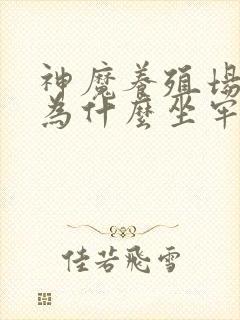 神魔養殖場
為什麼坐牢
佳若飛雪